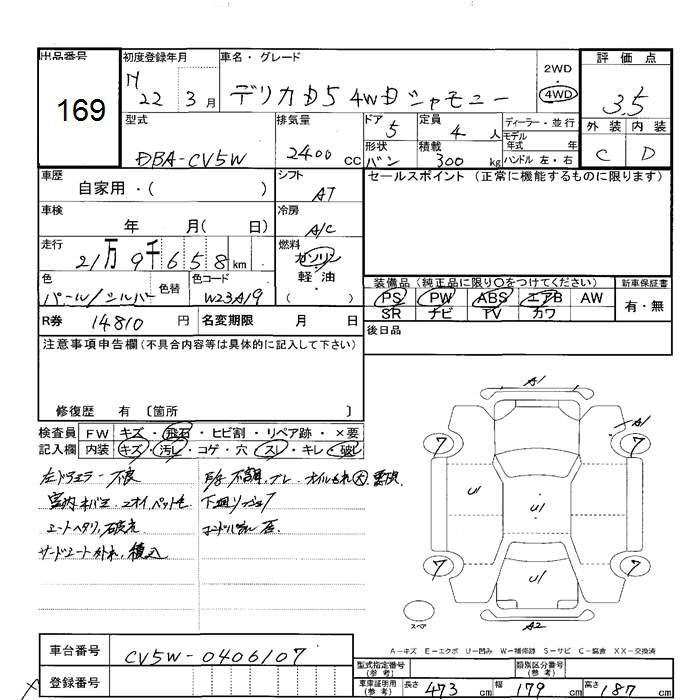 出品番号
169
初度登録年月
H 22 3月
車名・グレード
デリカD5 4WD シャモニー
2WD
・
4WD
評価点
3.5
外装 内装
C D
型式
DBA-CV5W
排気量
2400 cc
ドア 5
形状 バン
定員 4 人
積載 300 kg
ディーラー・並行
モデル
年式 年
ハンドル 左・右
車歴
自家用・( )
シフト
AT
セールスポイント (正常に機能するものに限ります)
車検
年 月( 日)
冷房
A/C
走行
21万9千658km
燃料
ガソリン
軽・油
( )
色
パール/シルバー
色替
色コード
W23A19
装備品 (純正品に限り○をつけてください)
新車保証書
PS PW ABS エアB AW
SR ナビ TV カワ
有・無
R券 14810 円
名変期限 月 日
後日品
注意事項申告欄(不具合内容等は具体的に記入して下さい)
修復歴 有 〔箇所 〕
検査員 FW キズ・飛石・ヒビ割・リペア跡・×要
記入欄 内装 キズ・汚レ・コゲ・穴・スレ・キレ・破レ
不良
不調、ブレ、オイルもれ 大
室内 ニオイ、ペット毛
シートヘタリ、破れ
サードシート外れ、積込
A1
A1
7
7
U1
U1
U1
7
7
A2
スペア
A-キズ E-エクボ U-凹み W-補修跡 S-サビ C-腐食 XX-交換済
車台番号
CV5W-0406107
登録番号
型式指定番号
(参考)
類別区分番号
(参考)
車庫証明用
(参考)
長さ 473 cm
幅 179 cm
高さ 187 cm